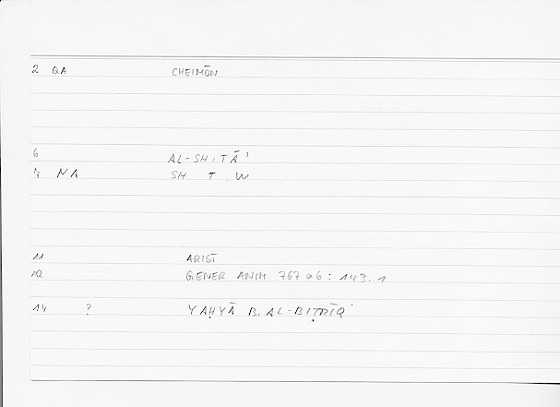 2 QA CHEIMŌN
6 AL-SHITĀʾ
7 NA SH T W
11 ARIST
12 GENER ANIM 767a6 : 143.1
14 ? YAḤYĀ B. AL-BIṬRĪQ